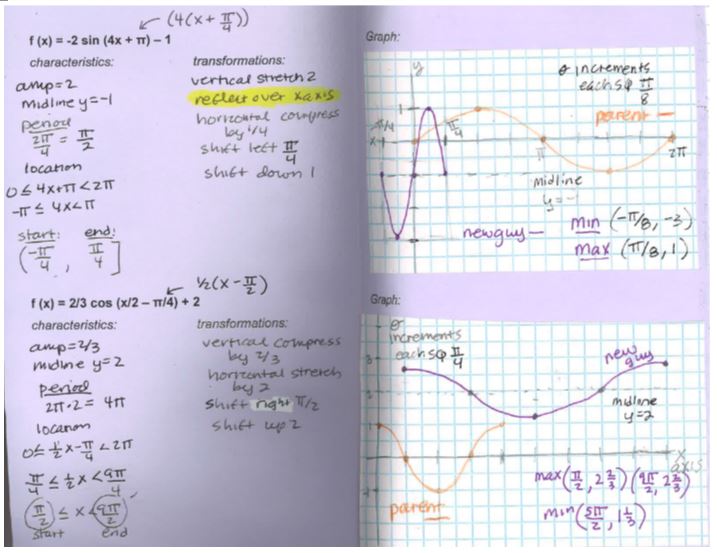 (4(x + π/4))
f (x) = -2 sin (4x + π) – 1
characteristics:
amp=2
midline y=-1
period
2π/4 = π/2
location
0≤ 4x+π <2π
-π≤ 4x<π
start: end:
(-π/4, π/4]
transformations:
vertical stretch 2
reflect over x axis
horizontal compress
by 1/4
shift left π/4
shift down 1
Graph:
y
θ increments
each sq π/8
parent —
1
-π/4
π/4
x
π
2π
midline
y=-1
newguy —
min (-π/8, -3)
max (π/8, 1)
½(x - π/2)
f (x) = 2/3 cos (x/2 – π/4) + 2
characteristics:
amp=2/3
midline y=2
period
2π·2 = 4π
location
0≤ ½x-π/4 <2π
π/4 ≤ ½x < 9π/4
π/2 ≤ x < 9π/2
start end
transformations:
vertical compress
by 2/3
horizontal stretch
by 2
shift right π/2
shift up 2
Graph:
θ
increments
each sq π/4
3
new
guy
midline
y=2
1
x
axis
-1
parent
max(π/2, 2⅔) (9π/2, 2⅔)
min(5π/2, 1⅓)